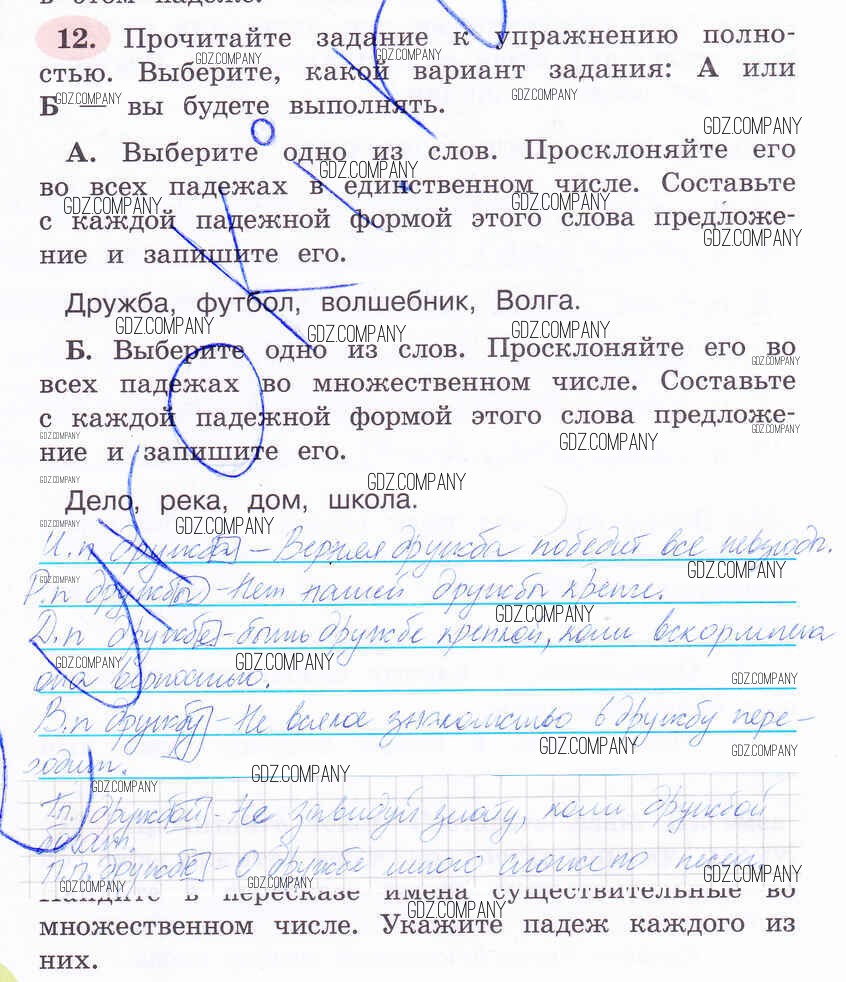 12. Прочитайте задание к упражнению полно-
стью. Выберите, какой вариант задания: А или
Б — вы будете выполнять.
А. Выберите одно из слов. Просклоняйте его
во всех падежах в единственном числе. Составьте
с каждой падежной формой этого слова предложе-
ние и запишите его.
Дружба, футбол, волшебник, Волга.
Б. Выберите одно из слов. Просклоняйте его во
всех падежах во множественном числе. Составьте
с каждой падежной формой этого слова предложе-
ние и запишите его.
Дело, река, дом, школа.
И.п дружба – Верная дружба победит все невзгоды.
Р.п дружбы – Нет нашей дружбы крепче.
Д.п дружбе – быть дружбе крепкой, коли вскормлена
она верностью.
В.п дружбу – Не всякое знакомство в дружбу пере-
ходит.
Т.п. дружбой – Не завидуй злату, коли дружбой
богат.
П.п. дружбе – О дружбе много сложено песен.
Найдите в пересказе имена существительные во
множественном числе. Укажите падеж каждого из
них.
GDZ.COMPANY